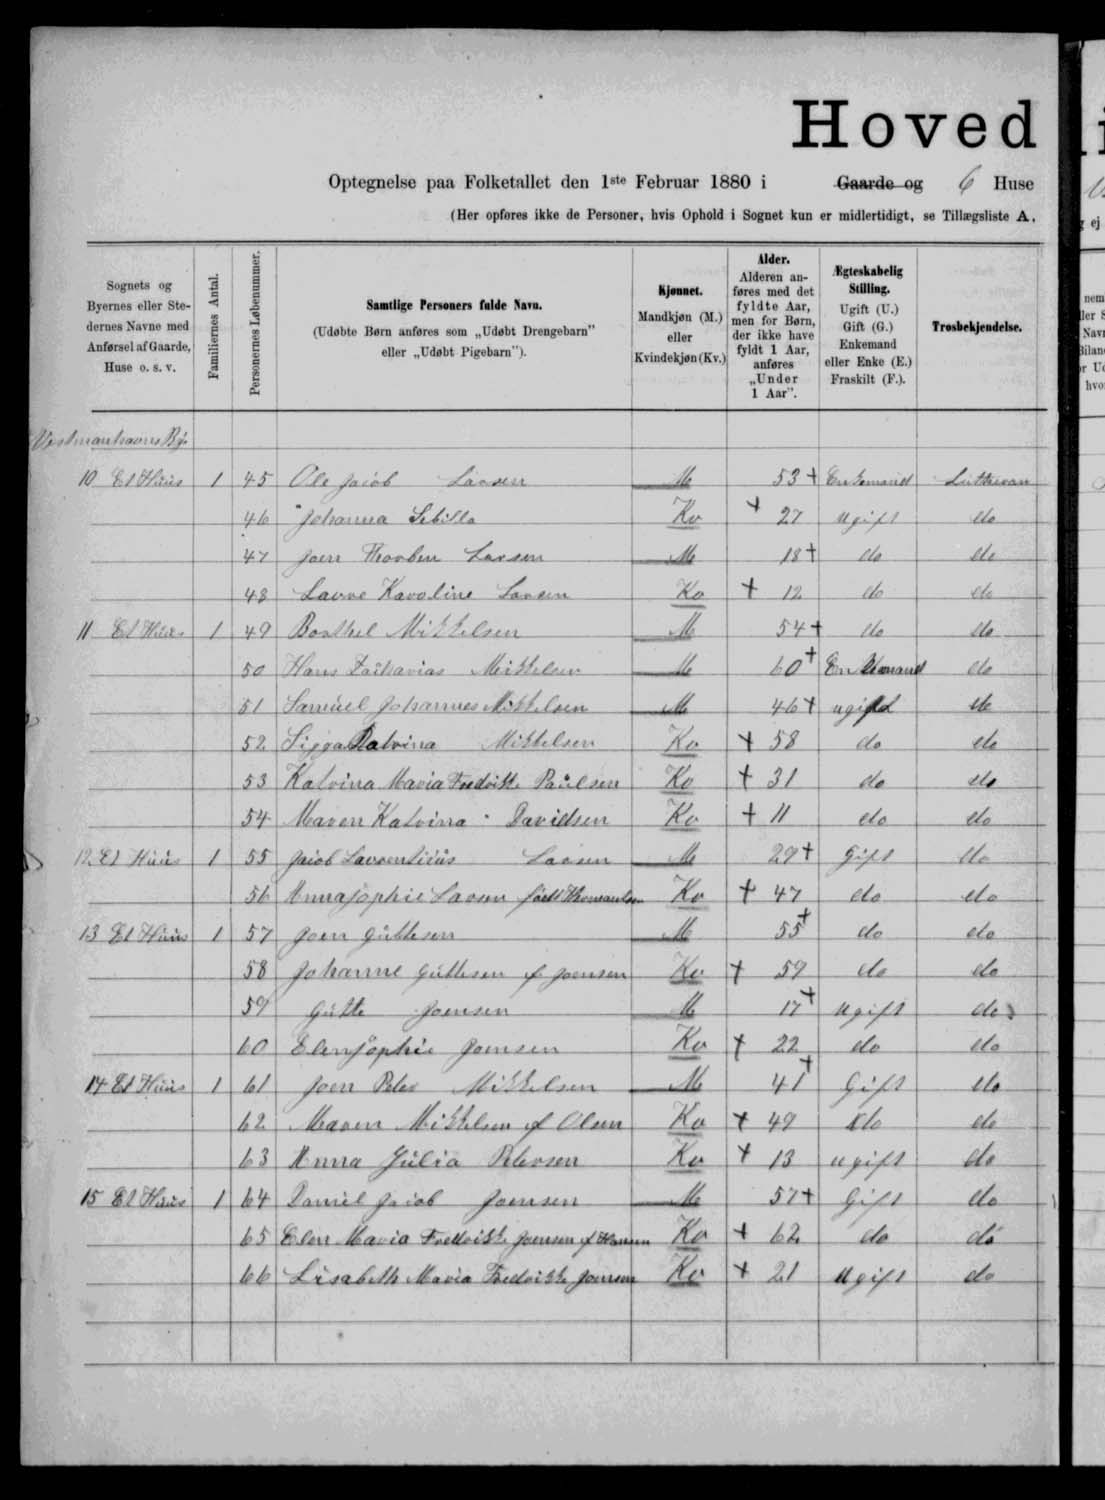 Hoved
Optegnelse paa Folketallet den 1ste Februar 1880 i Gaarde og 6 Huse
(Her opføres ikke de Personer, hvis Ophold i Sognet kun er midlertidigt, se Tillægsliste A,
Sognets og Byernes eller Stedernes Navne med Anførsel af Gaarde, Huse o. s. v.
Familiernes Antal.
Personernes Løbenummer.
Samtlige Personers fulde Navn.
(Udøbte Børn anføres som „Udøbt Drengebarn"
eller „Udøbt Pigebarn").
Kjønnet.
Mandkjøn (M.)
eller
Kvindekjøn (Kv.)
Alder.
Alderen anføres med det fyldte Aar, men for Børn, der ikke have fyldt 1 Aar, anføres „Under 1 Aar".
Ægteskabelig Stilling.
Ugift (U.)
Gift (G.)
Enkemand
eller Enke (E.)
Fraskilt (F.).
Trosbekjendelse.
Vestmanhavns By
10 Et Huus 1 45 Ole Jacob Larsen M 53 + Enkemand Lutheran
46 Johanna Sibilla Kv + 27 ugift do
47 Joen Thorben Larsen M 18 + do do
48 Lavre Karoline Larsen Kv + 12 do do
11 Et Huus 1 49 Barthel Mikkelsen M 54 + do do
50 Hans Zacharias Mikkelsen M 60 + Enkemand do
51 Samuel Johannes Mikkelsen M 46 + ugift do
52 Sigga Katrina Mikkelsen Kv + 58 do do
53 Katrina Maria Fredrikke Paulsen Kv + 31 do do
54 Maren Katrina Davidsen Kv + 11 do do
12 Et Huus 1 55 Jacob Laurentius Larsen M 29 + Gift do
56 Anna Sophie Larsen født Thomasen Kv + 47 do do
13 Et Huus 1 57 Joen Guttesen M 55 + do do
58 Johanne Guttesen f Joensen Kv + 59 do do
59 Gutte Joensen M 17 + Ugift do
60 Elensophie Joensen Kv + 22 do do
14 Et Huus 1 61 Joen Peter Mikkelsen M 41 + Gift do
62 Maren Mikkelsen f Olsen Kv + 49 do do
63 Anna Julia Petersen Kv + 13 ugift do
15 Et Huus 1 64 Daniel Jacob Joensen M 57 + Gift do
65 Elen Maria Fredrikke Joensen f Hansen Kv + 62 do do
66 Lisabeth Maria Fredrikke Joensen Kv + 21 Ugift do